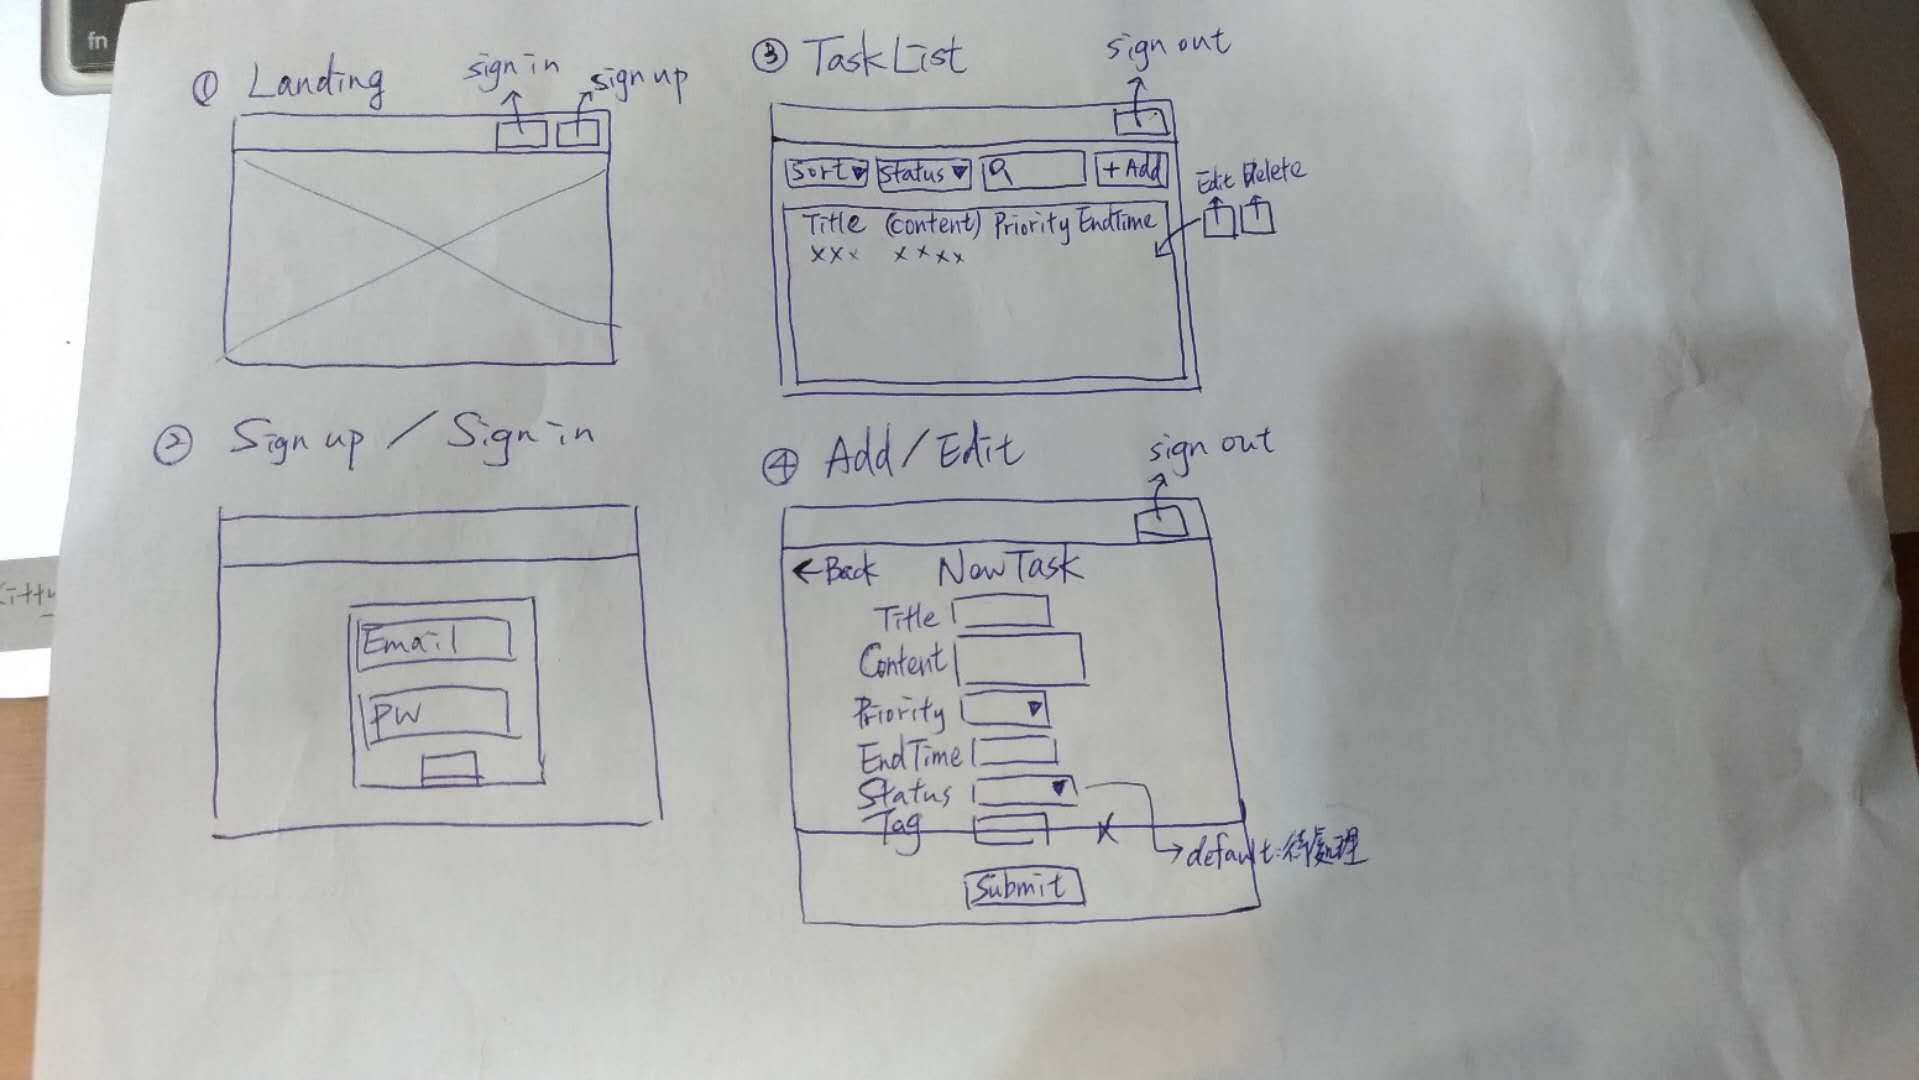 fn
① Landing
sign in
sign up
② Sign up / Sign in
Email
PW
③ Task List
sign out
Sort▼
Status▼
+ Add
Edit Delete
Title (content) Priority EndTime
xxx xxxx
④ Add/Edit
sign out
←Back
New Task
Title
Content
Priority
EndTime
Status
Tag
x
→default:待處理
Submit